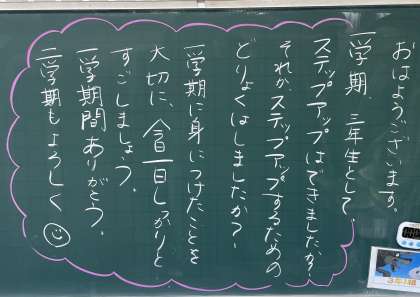 おはようございます。
一学期、三年生として、
ステップアップはできましたか？
それかステップアップするための
どりょくはしましたか？
一学期に身につけたことを
大切に、今日一日しっかりと
すごしましょう。
一学期間ありがとう。
二学期もよろしく